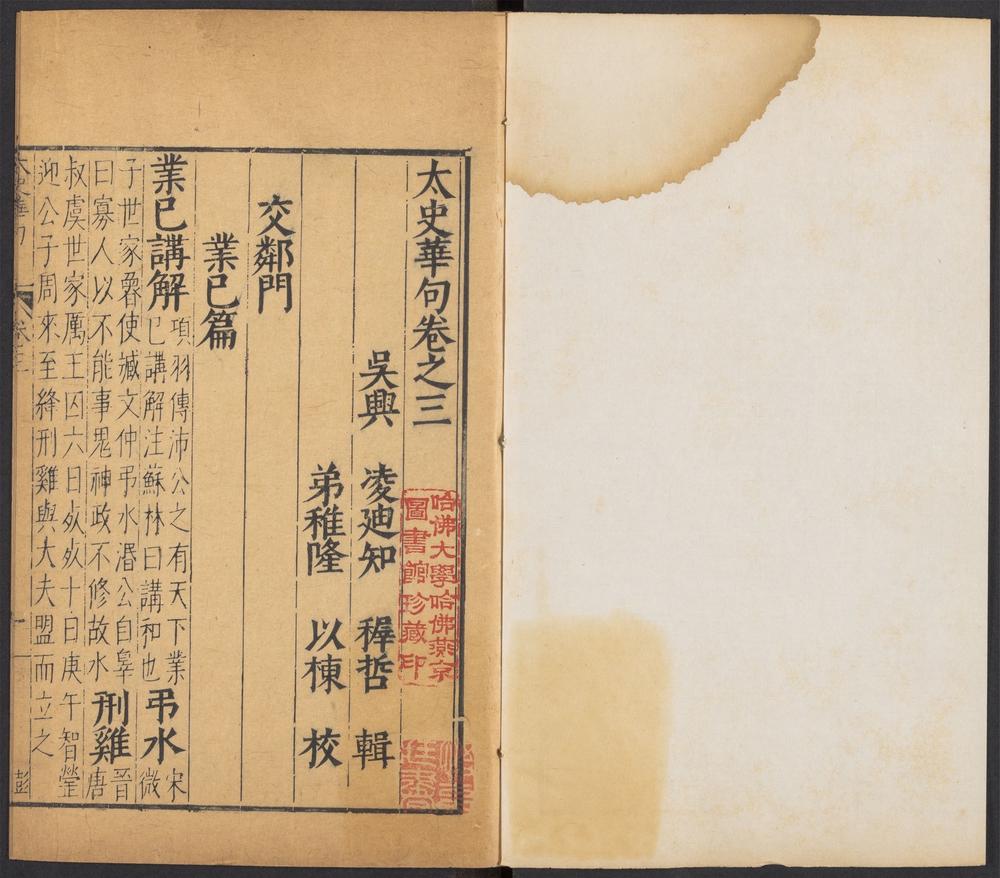 太史華句卷之三
吳興 凌廸知 穉哲 輯
弟稚隆 以棟 校
交鄰門
業已篇
業已講解
項羽傳沛公之有天下業
已講解注蘇林曰講和也
弔水
宋
微
子世家魯使臧文仲弔水湣公自辠
曰寡人以不能事鬼神政不修故水
刑雞
晉
唐
叔虞世家厲王囚六日死死十日庚午智罃
迎公子周來至絳刑雞與大夫盟而立之
彭
哈佛大學哈佛燕京
圖書館珍藏印